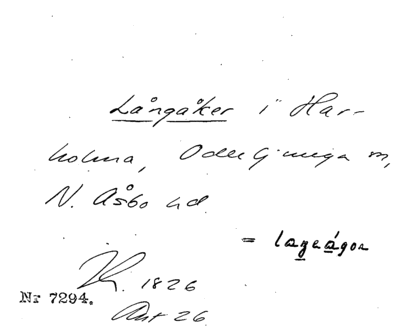 Långåker i Har-
holma, Oderljunga sn,
N. Åsbo hd.
= lageågor
K. 1826
Nr 7294.
Akt 26